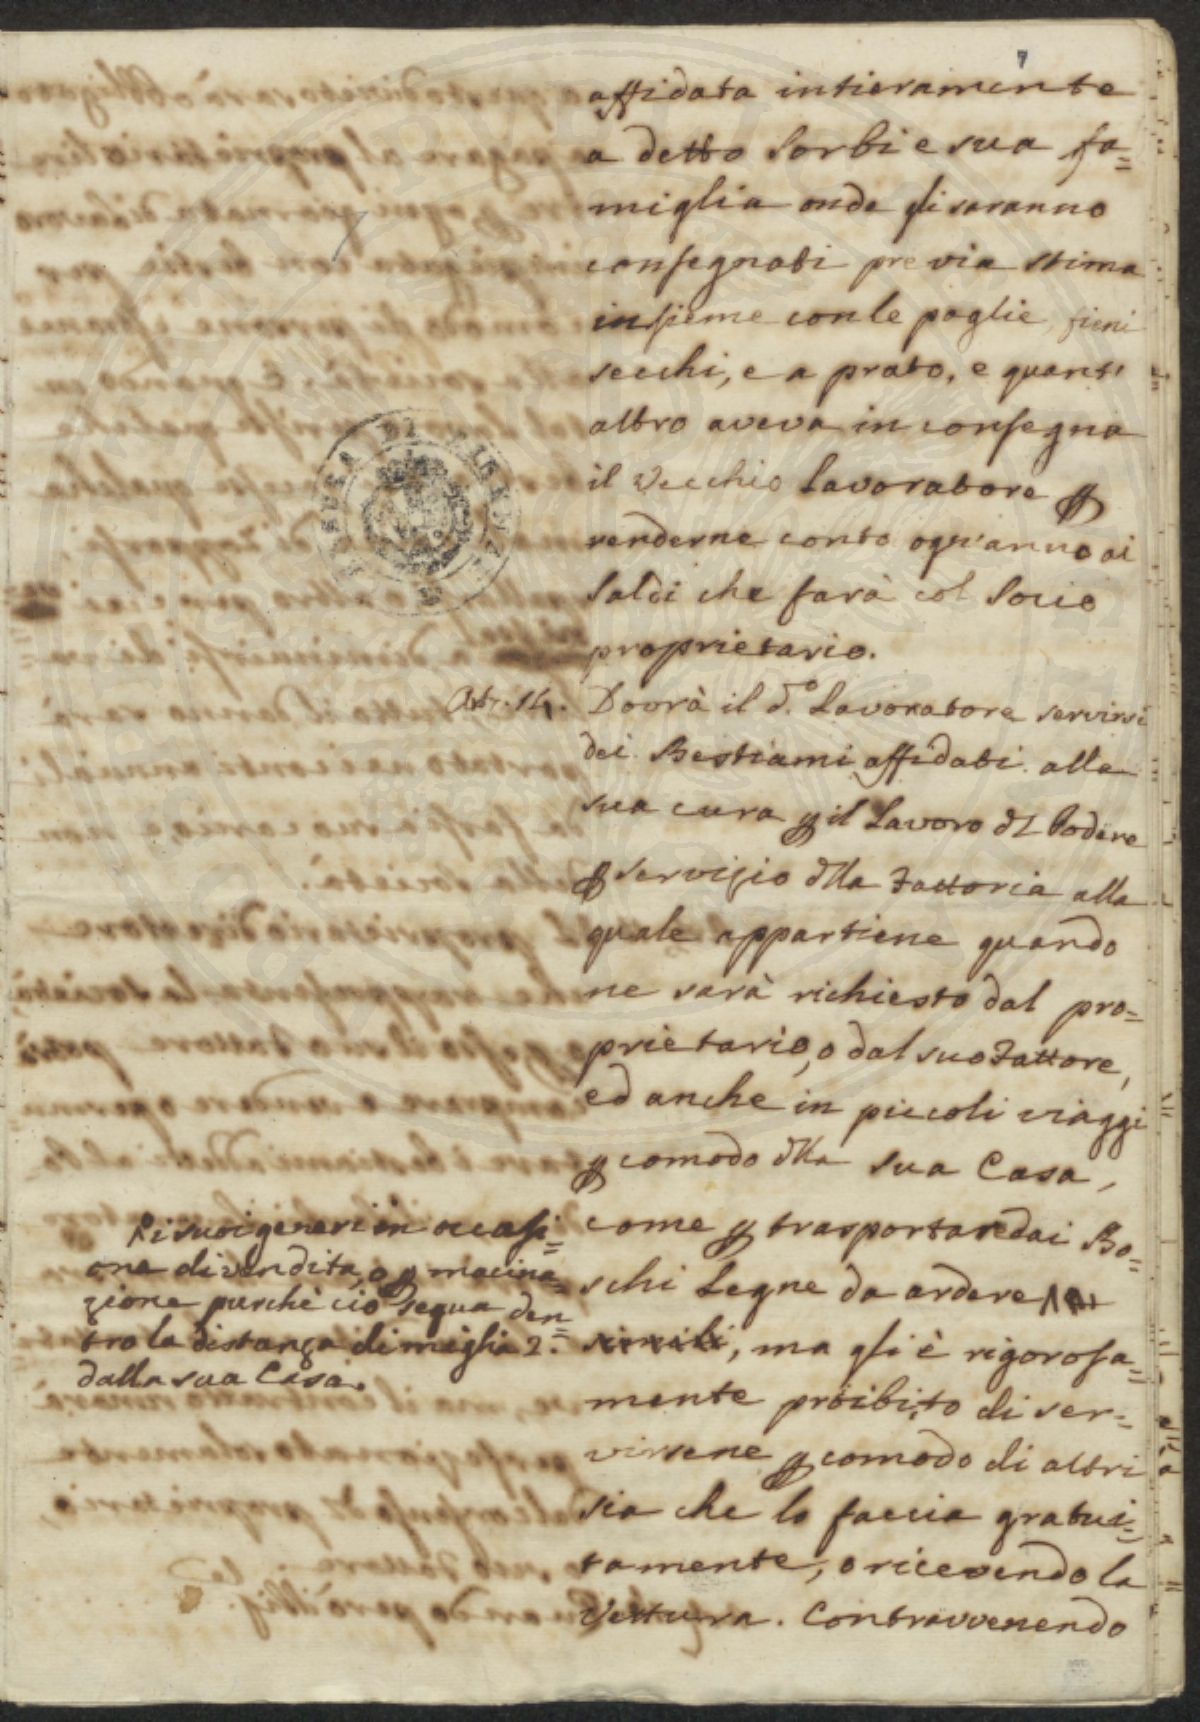 7
affidata intieramente
a detto Sorbi e sua fa=
miglia onde gli saranno
consegnati previa stima
insieme con le paglie, fieni
secchi, e a prato, e quant'
altro aveva in consegna
il Vecchio Lavoratore p
renderne conto ogn'anno ai
Saldi che farà col Socio
proprietario.
Art. 14. Dovrà il d.o Lavoratore servirsi
dei Bestiami affidati alla
sua cura p il Lavoro dl Podere
p servizio dlla Fattoria alla
quale appartiene quando
ne sarà richiesto dal pro=
prietario, o dal suo Fattore,
ed anche in piccoli viaggi
p comodo dlla sua Casa,
come p trasportare dai Bo=
schi Legne da ardere
simili, ma gli è rigorosa=
mente proibito di ser=
virsene p comodo di altri
sia che lo faccia gratui=
tamente, o ricevendo la
Vettura. Contravvenendo
i suoi generi in occasi=
one di vendita, o p macina=
zione purchè ciò segua den=
tro la distanza di miglia 2.
dalla sua Casa.